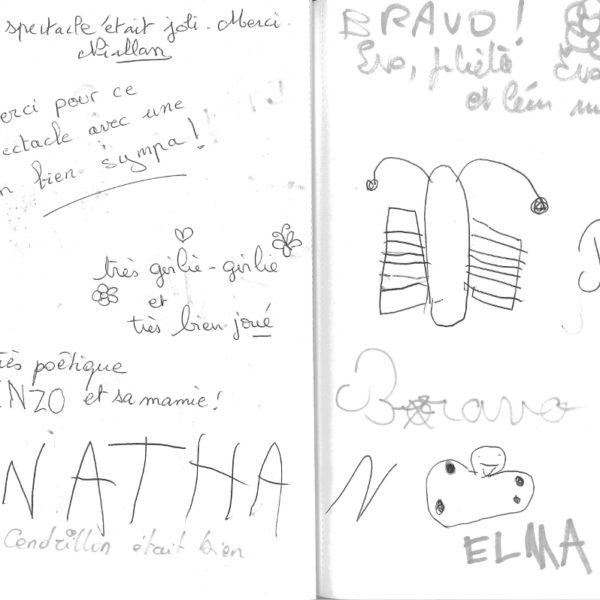 spectacle était joli. Merci.
Niallan
erci pour ce
ectacle avec une
n bien sympa!
très girlie-girlie
et
très bien joué
ès poëtique
NZO et sa mamie!
NATHA
Cendrillin était bien
BRAVO!
Eva,
et
Bravo
N
ELMA